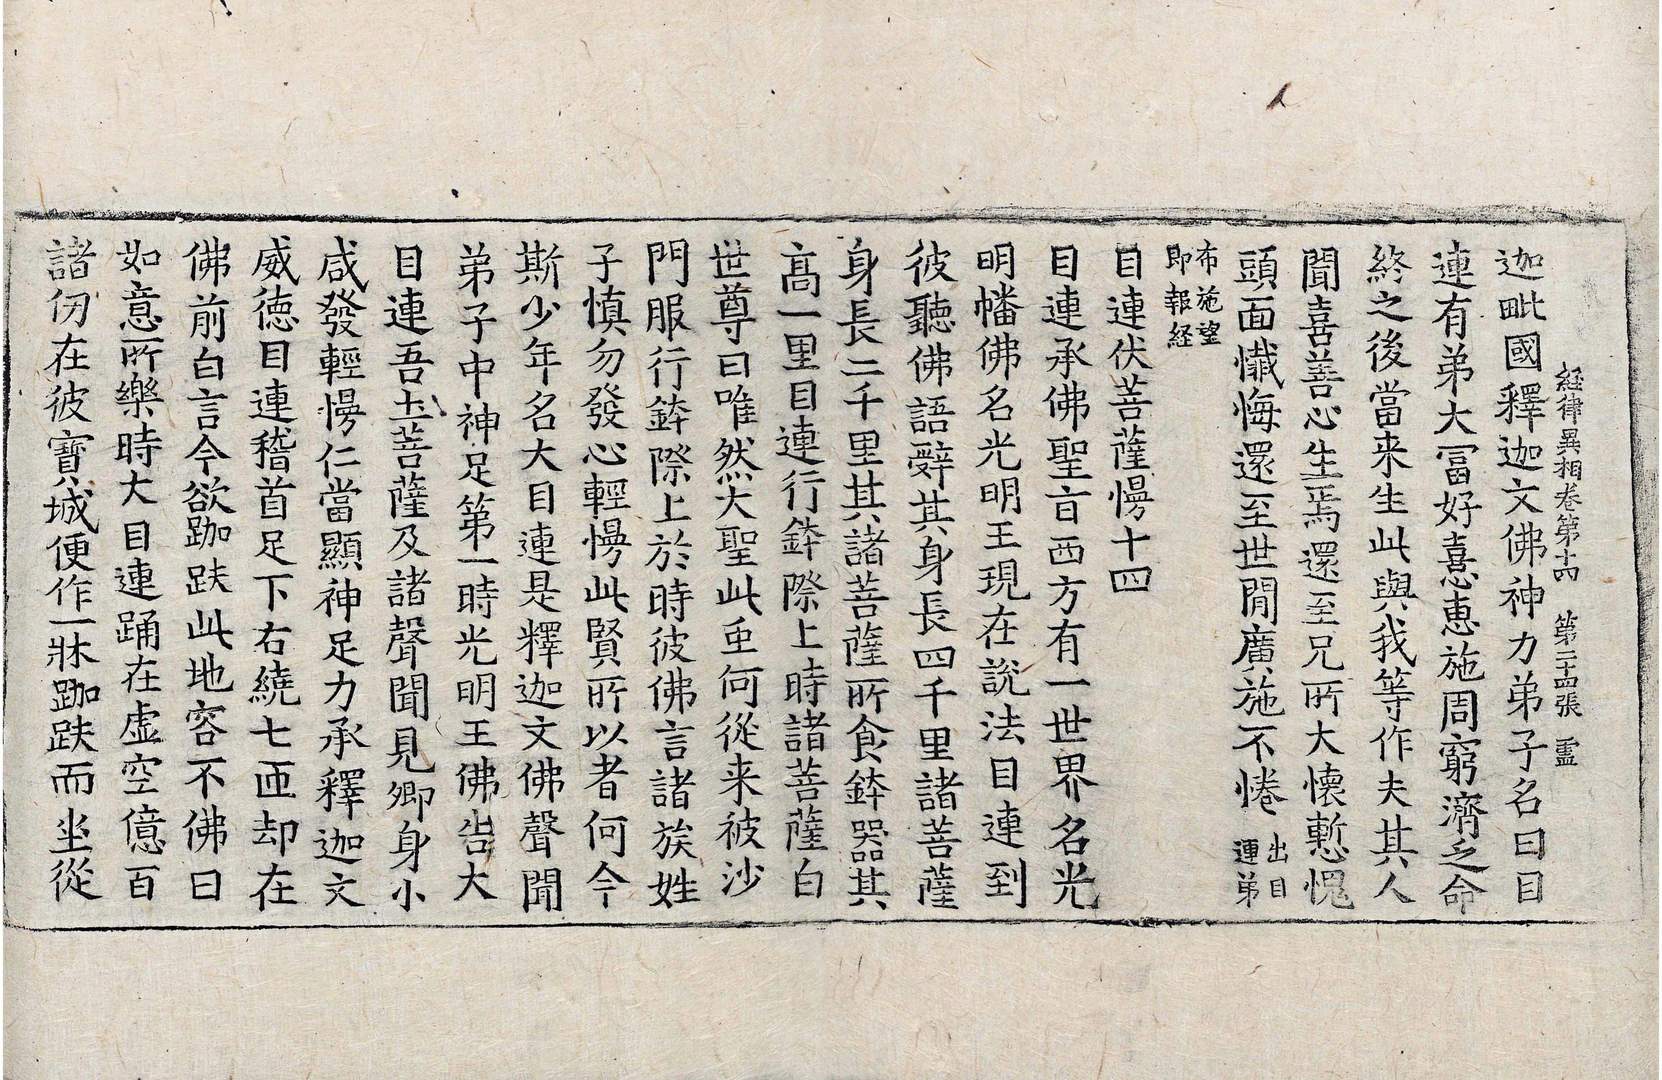 経律異相卷第十四　第二十四張　霊
迦毗國釋迦文佛神力弟子名曰目
連有弟大冨好憙惠施周窮濟乏命
終之後當来生此與我等作夫其人
聞喜善心生焉還至兄所大懐慙愧
頭面懺悔還至世閒廣施不惓出目連弟
布施望即報経
目連伏菩薩慢十四
目連承佛聖旨西方有一世界名光
明幡佛名光明王現在說法目連到
彼聽佛語辭其身長四千里諸菩薩
身長二千里其諸菩薩所食鉢器其
髙一里目連行鉢際上時諸菩薩白
世尊曰唯然大聖此虫何從来被沙
門服行鉢際上於時彼佛言諸族姓
子慎勿發心輕慢此賢所以者何今
斯少年名大目連是釋迦文佛聲聞
弟子中神足第一時光明王佛告大
目連吾土菩薩及諸聲聞見卿身小
咸發輕慢仁當顯神足力承釋迦文
威徳目連稽首足下右繞七匝却在
佛前白言今欲跏趺此地容不佛曰
如意所樂時大目連踊在虚空億百
諸仞在彼寳城便作一牀跏趺而坐從